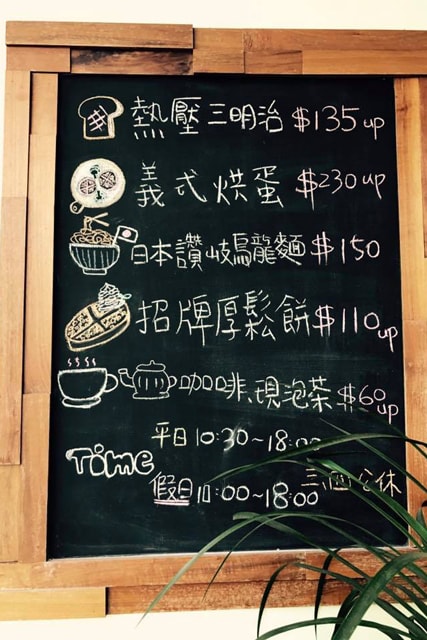 熱壓三明治 $135 up
義式烘蛋 $230 up
日本讚岐烏龍麵 $150
招牌厚鬆餅 $110 up
咖啡、現泡茶 $60 up
平日 10:30~18:00
Time
假日 10:00~18:00 公休